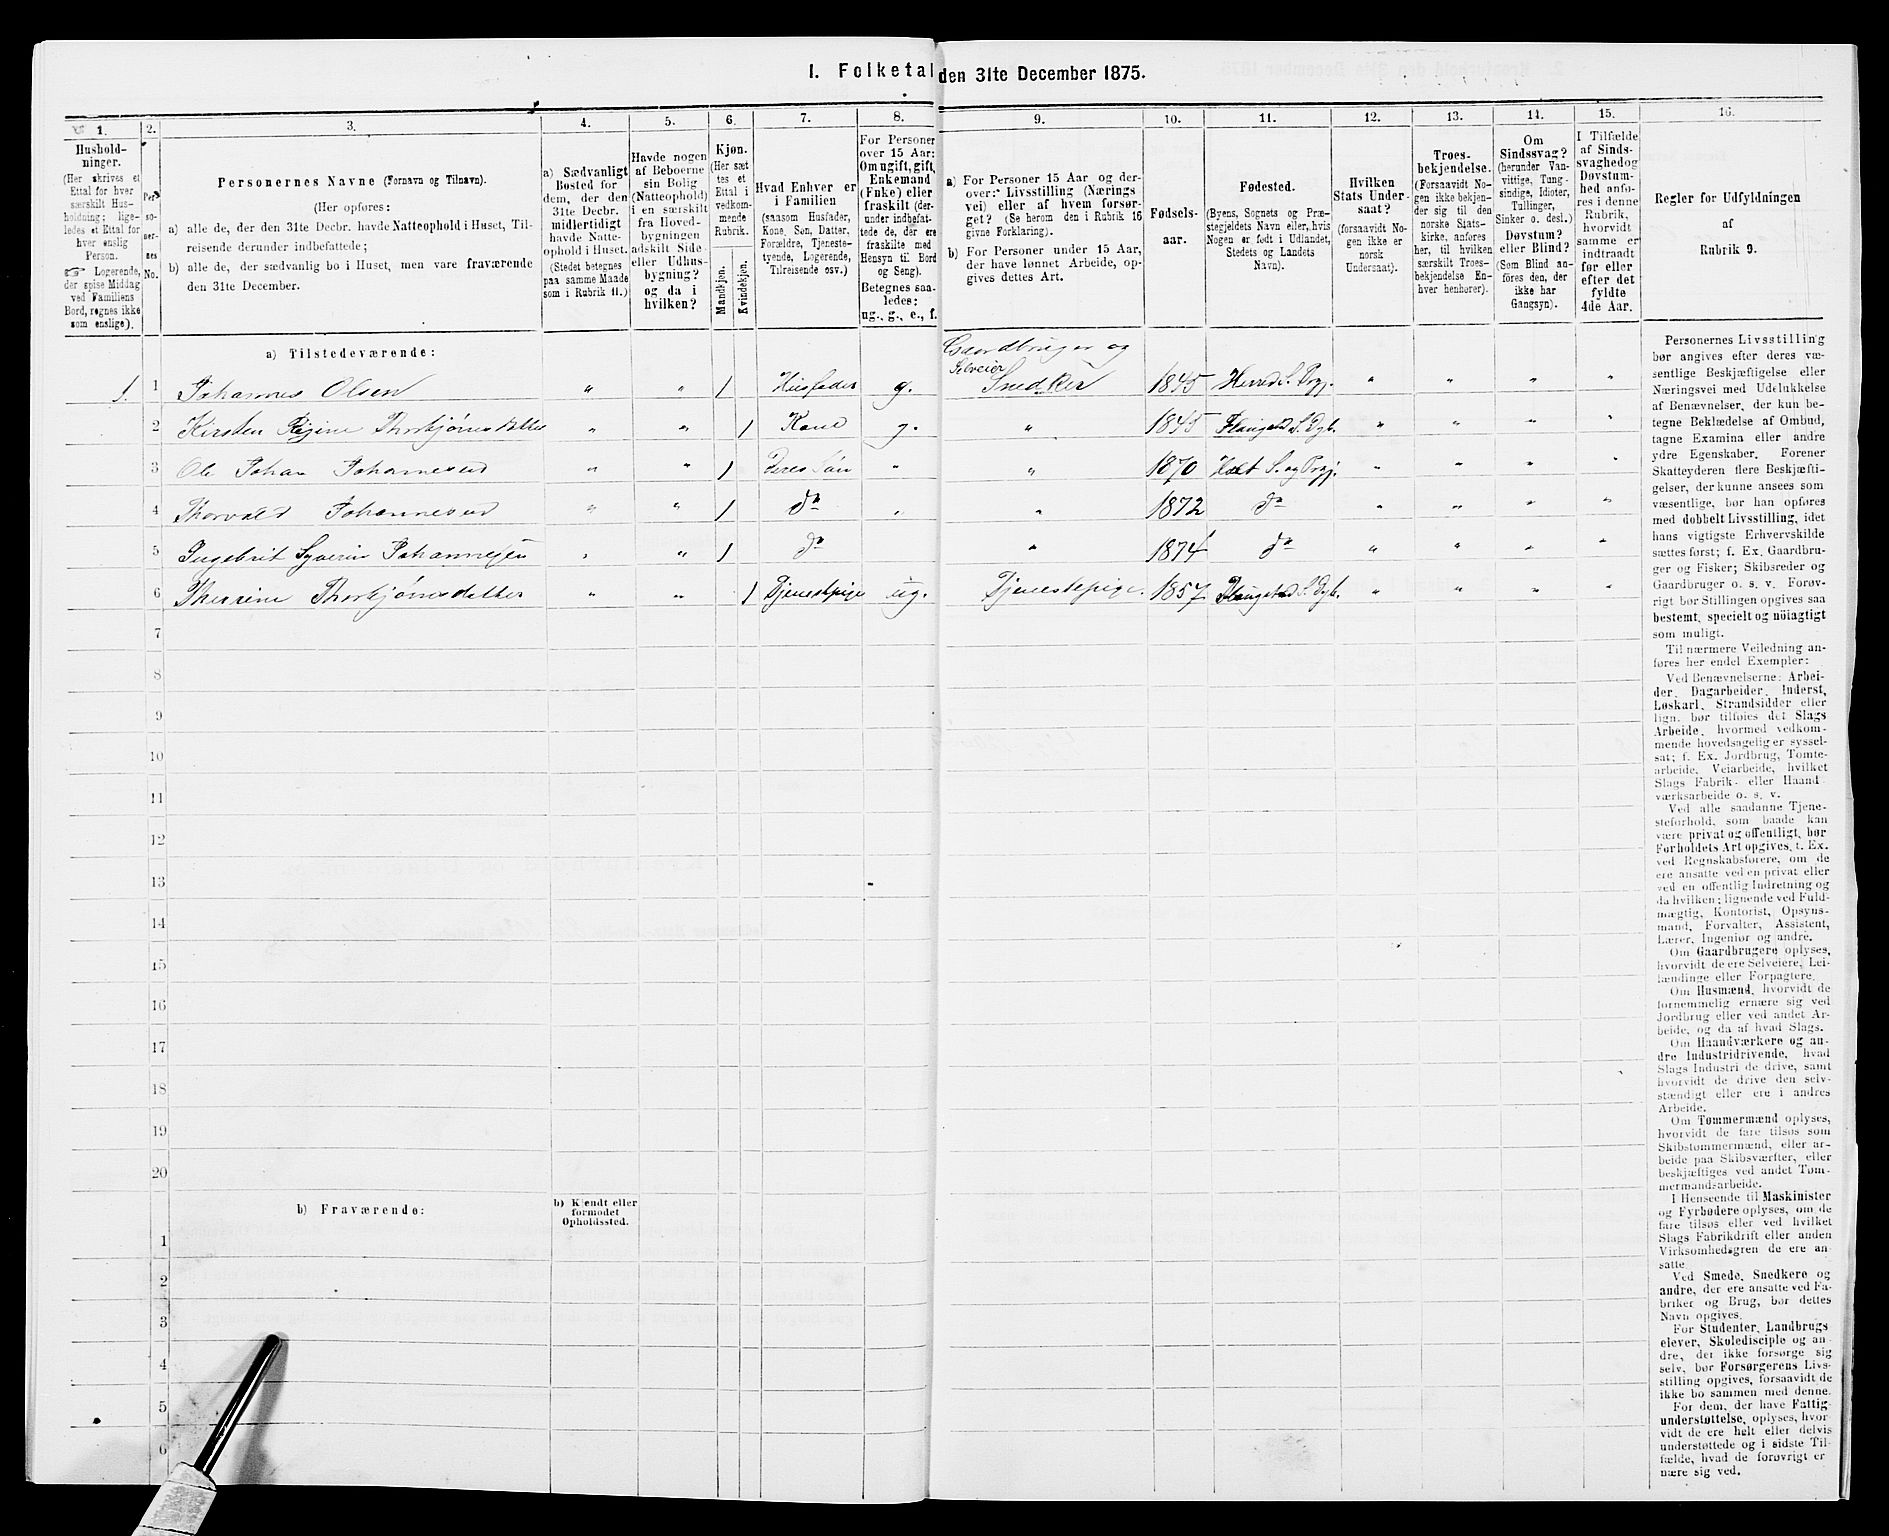 I. Folketal den 31te December 1875.
1. 2. 3. 4. 5. 6. 7. 8. 9. 10. 11. 12. 13. 14. 15. 16.
Hushold-
ninger.
(Her skrives et
Ettal for hver
særskilt Hus-
holdning; lige-
ledes et Ettal for
hver enslig
Person.
☞ Logerende,
der spise Middag
ved Familiens
Bord, regnes ikke
som enslige).
Per-
so-
ner-
nes
No.
Personernes Navne (Fornavn og Tilnavn).
(Her opføres:
a) alle de, der den 31te Decbr. havde Natteophold i Huset, Til-
reisende derunder indbefattede;
b) alle de, der sædvanlig bo i Huset, men vare fraværende
den 31te December.
a) Sædvanligt
Bosted for
dem, der den
31te Decbr.
midlertidigt
havde Natte-
ophold i Huset.
(Stedet betegnes
paa samme Maade
som i Rubrik 11.)
Havde nogen
af Beboerne
sin Bolig
(Natteophold)
i en særskilt
fra Hoved-
bygningen
adskilt Side-
eller Udhus-
bygning?
og da i
hvilken?
Kjøn.
(Her sæt
tes et
Ettal i
vedkom-
mende
Rubrik.
Mandkjøn.
Kvindekjøn.
Hvad Enhver er
i Familien
(saasom Husfader,
Kone, Søn, Datter,
Forældre, Tjeneste-
tyende, Logerende,
Tilreisende osv.)
For Personer
over 15 Aar:
Om ugift, gift,
Enkemand
(Enke) eller
fraskilt (der-
under indbefat-
tede de, der ere
fraskilte med
Hensyn til Bord
og Seng).
Betegnes saa-
ledes:
ug., g., e., f.
a) For Personer 15 Aar og der-
over: Livsstilling (Nærings
vei) eller af hvem forsør-
get? (Se herom den i Rubrik 16
givne Forklaring).
b) For Personer under 15 Aar,
der have lønnet Arbeide, op-
gives dettes Art.
Fødsels-
aar.
Fødested.
(Byens, Sognets og Præ-
stegjeldets Navn eller, hvis
Nogen er født i Udlandet,
Stedets og Landets
Navn).
Hvilken
Stats Under-
saat?
(forsaavidt No-
gen ikke er
norsk
Undersaat).
Troes-
bekjendelse.
(Forsaavidt No-
gen ikke bekjen-
der sig til den
norske Stats-
kirke, anføres
her, til hvilken
særskilt Troes-
bekjendelse En-
hver henhører).
Om
Sindssvag?
(herunder Van-
vittige, Tung-
sindige, Idioter,
Tullinger,
Sinker o. desl.)
Døvstum?
eller Blind?
(Som Blind an-
føres den, der
ikke har
Gangsyn).
I Tilfælde
af Sinds-
svaghed og
Døvstum-
hed anfø-
res i denne
Rubrik,
hvorvidt
samme er
indtraadt
før eller
efter det
fyldte
4de Aar.
Regler for Udfyldningen
af
Rubrik 9.
a) Tilstedeværende:
Gaardbruger og
Selveier
1. 1 Johannes Olsen " " 1 Husfader g. Snedker 1845 Herred S. Prgj. " " " "
2 Kirsten Regine Thorbjørnsdatter " " 1 Kone g. " 1845 S. Dyb. " " " "
3 Ole Johan Johannesen " " 1 Deres Søn " " 1870 Holt S. og Prgj. " " " "
4 Thorvald Johannesen " " 1 do " " 1872 do " " " "
5 Ingebrit Syverin Johannesen " " 1 do " 1874 do " " " "
6 Therrine Thorbjørnsdatter " " 1 Tjenestepige ug. Tjenestepige. 1857 S. Dyb. " " " "
7
8
9
10
11
12
13
14
15
16
17
18
19
20
b) Fraværende:
b) Kjendt eller
formodet
Opholdssted.
1
2
3
4
5
6
Personernes Livsstilling
bør angives efter deres væ-
sentlige Beskjæftigelse eller
Næringsvei med Udelukkelse
af Benævnelser, der kun be-
tegne Beklædelse af Ombud,
tagne Examina eller andre
ydre Egenskaber. Forener
Skatteyderen flere Beskjæfti-
gelser, der kunne ansees som
væsentlige, bør han opføres
med dobbelt Livsstilling, idet
hans vigtigste Erhvervskilde
sættes først; f. Ex. Gaardbru-
ger og Fisker; Skibsreder og
Gaardbruger o. s. v. Forøv-
rigt bør Stillingen opgives saa
bestemt, specielt og nöiagtigt
som muligt.
Til nærmere Veiledning an-
føres her endel Exempler:
Ved Benævnelserne: Arbei-
der, Dagarbeider, Inderst,
Løskarl, Strandsidder eller
lign. bør tilføies det Slags
Arbeide, hvormed vedkom-
mende hovedsagelig er syssel-
sat; f. Ex. Jordbrug, Tomte-
arbeide, Veiarbeide, hvilket
Slags Fabrik- eller Haand-
værksarbeide o. s. v.
Ved alle saadanne Tjene-
steforhold, som baade kan
være privat og offentligt, bør
Forholdets Art opgives, t. Ex.
ved Regnskabsførere, om de
ere ansatte ved en privat eller
ved en offentlig Indretning og
da hvilken; lignende ved Fuld-
mægtig, Kontorist, Opsyns-
mand, Forvalter, Assistent,
Lærer, Ingeniør og andre.
Om Gaardbrugere oplyses,
hvorvidt de ere Selveiere, Lei-
lændinge eller Forpagtere.
Om Husmænd, hvorvidt de
fornemmelig ernære sig ved
Jordbrug eller ved andet Ar-
beide, og da af hvad Slags.
Om Haandværkere og an-
dre Industridrivende, hvad
Slags Industri de drive, samt
hvorvidt de drive den selv-
stændigt eller ere i andres
Arbeide.
Om Tømmermænd oplyses,
hvorvidt de fare tilsøs som
Skibstømmermænd, eller ar-
beide paa Skibsværfter, eller
beskjæftiges ved andet Tøm-
mermandsarbeide.
I Henseende til Maskinister
og Fyrbødere oplyses, om de
fare tilsøs eller ved hvilket
Slags Fabrikdrift eller anden
Virksomhedsgren de ere an-
satte
Ved Smede, Snedkere og
andre, der ere ansatte ved Fa-
briker og Brug, bør dettes
Navn opgives.
For Studenter, Landbrugs
elever, Skoledisciple og an-
dre, der ikke forsørge sig
selv, bør Forsørgerens Livs-
stilling opgives, forsaavidt de
ikke bo sammen med denne.
For dem, der have Fattig-
understøttelse, oplyses, hvor-
vidt de ere helt eller delvis
understøttede og i sidste Til-
fælde, hvad de forøvrigt er-
nære sig ved.